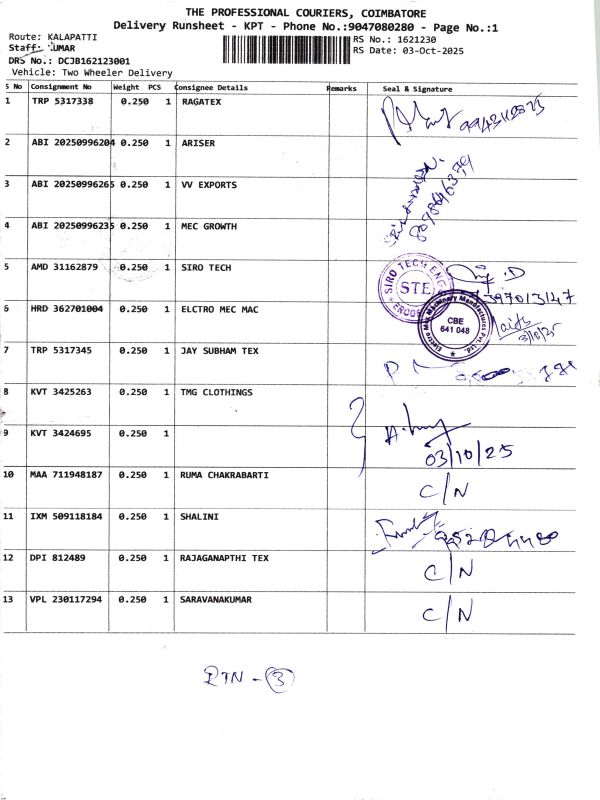 THE PROFESSIONAL COURIERS, COIMBATORE
Delivery Runsheet - KPT - Phone No.:9047080280 - Page No.:1
Route: KALAPATTI
RS No.: 1621230
Staff: KUMAR
RS Date: 03-Oct-2025
DRS No.: DCJB162123001
Vehicle: Two Wheeler Delivery
S No Consignment No Weight PCS Consignee Details Remarks Seal & Signature
1 TRP 5317338 0.250 1 RAGATEX
2 ABI 20250996204 0.250 1 ARISER
3 ABI 20250996265 0.250 1 VV EXPORTS
4 ABI 20250996235 0.250 1 MEC GROWTH
5 AMD 31162879 0.250 1 SIRO TECH
SIRO TECH ENG
STE
ERODE
6 HRD 362701004 0.250 1 ELCTRO MEC MAC
Electro Mec Machinery Manufactures Pvt. Ltd.
CBE
641 048
3/10/25
7 TRP 5317345 0.250 1 JAY SUBHAM TEX
8 KVT 3425263 0.250 1 TMG CLOTHINGS
9 KVT 3424695 0.250 1
03/10/25
10 MAA 711948187 0.250 1 RUMA CHAKRABARTI
C/N
11 IXM 509118184 0.250 1 SHALINI
12 DPI 812489 0.250 1 RAJAGANAPTHI TEX
C/N
13 VPL 230117294 0.250 1 SARAVANAKUMAR
C/N
RTN - 3